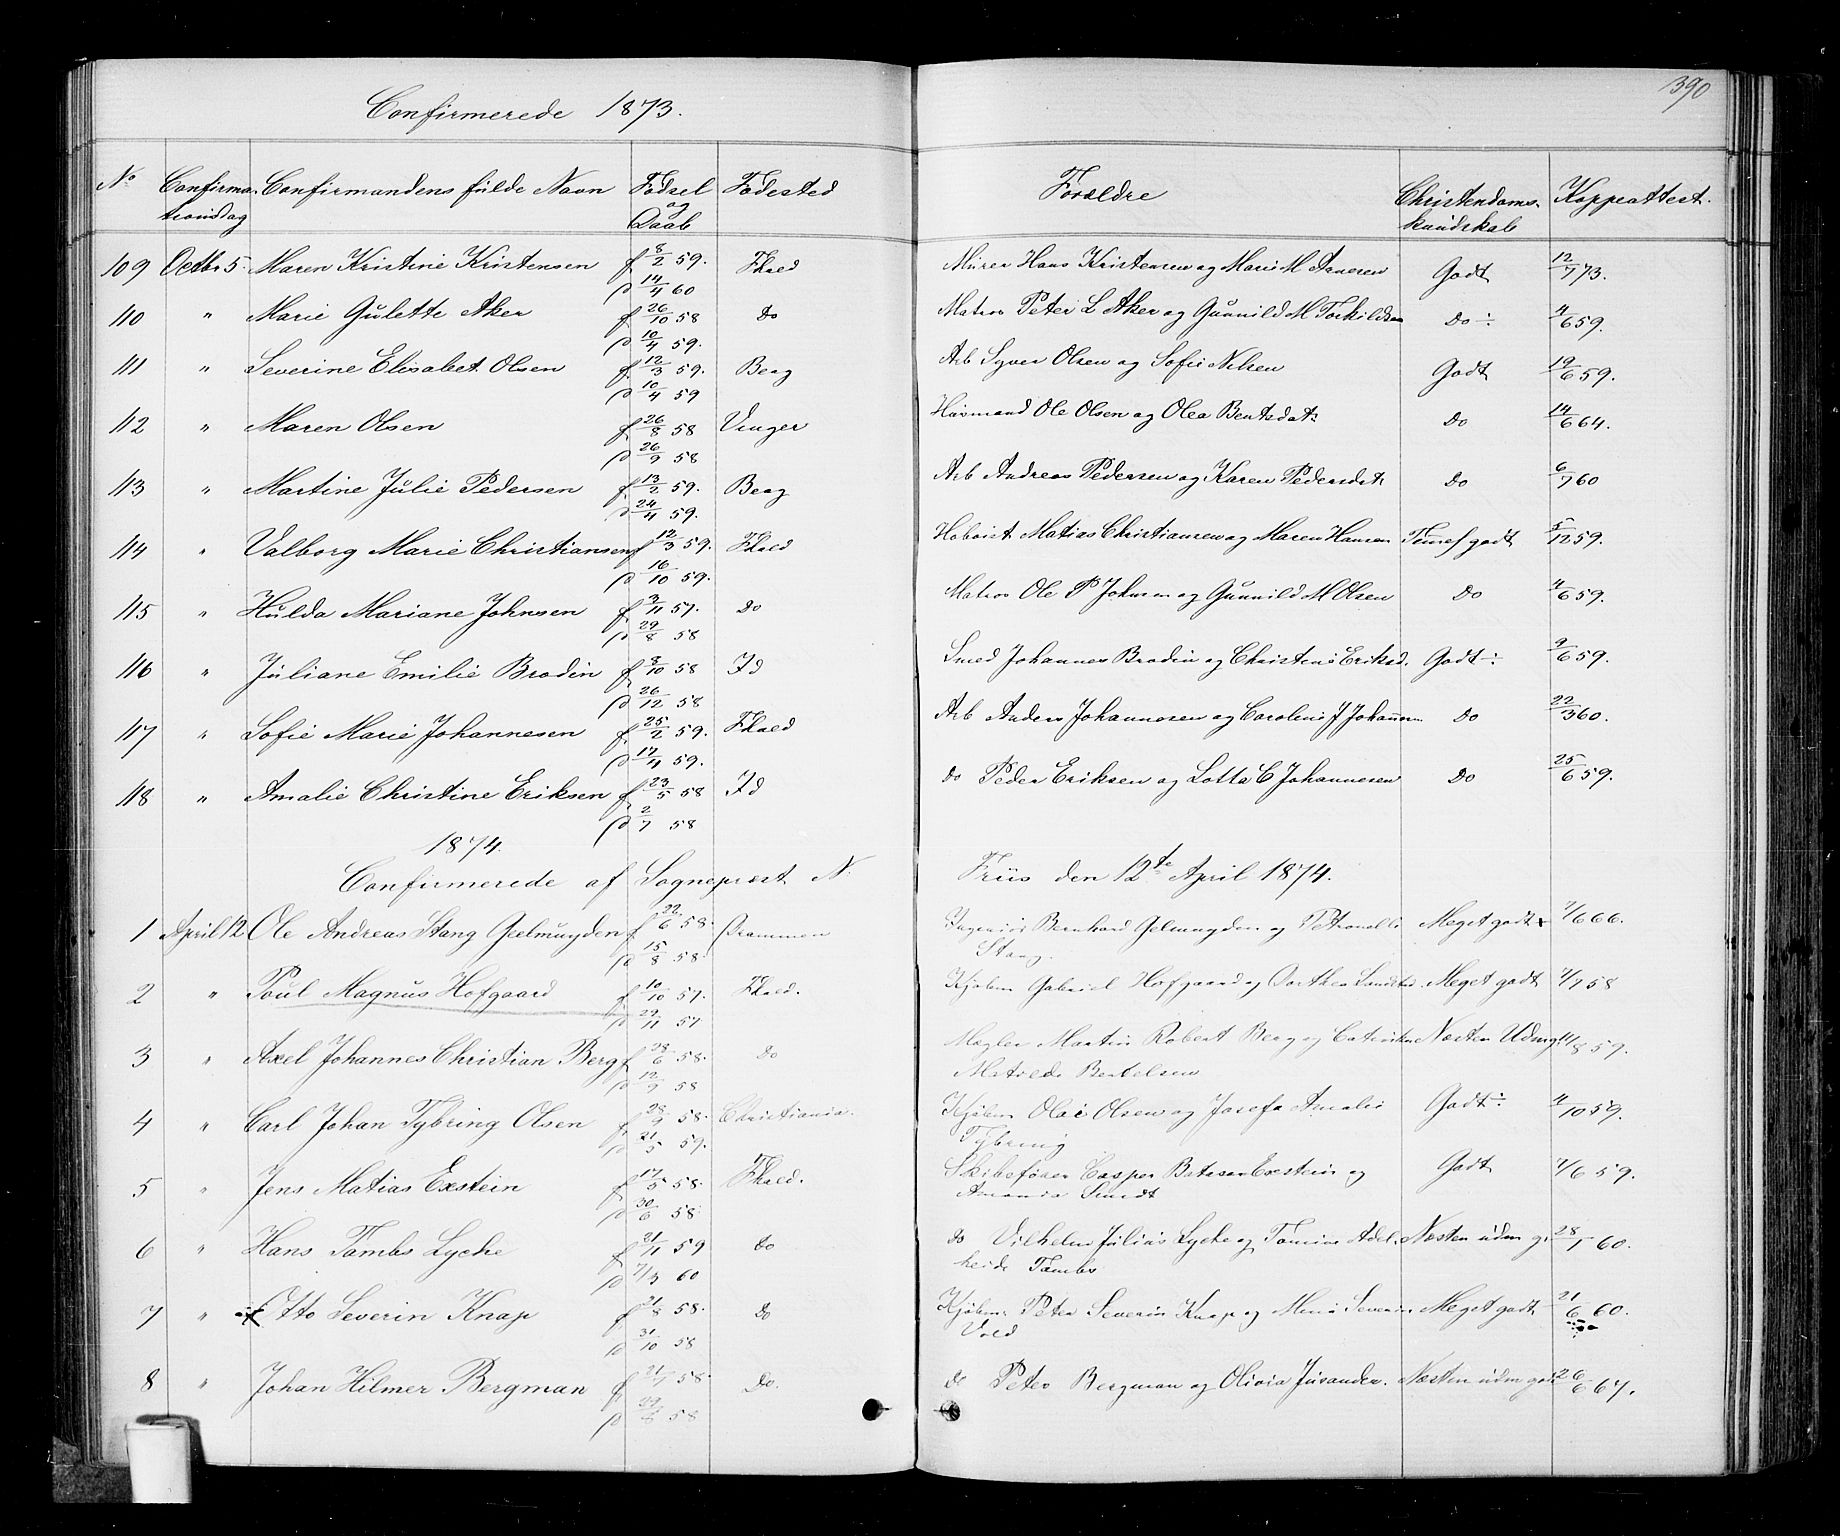 390
Confirmerede 1873.
No Confirmationsdag Confirmandens fulde Navn Fødsel og Daab Fødested Forældre Christendomskundskab Koppeattest.
109 Octbr 5. Maren Kristine Kristensen f 8/2 59. d 14/4 60 Fhald Murer Hans Kristensen og Maris M Arnesen Godt 12/7 73.
110 " Marie Gulette Aker f 26/10 58 d 10/4 59. Do Matros Peter L Aker og Gunnild M Torkilds Do ÷ 4/6 59.
111 " Severine Elisabet Olsen f 12/3 59. d 10/4 59 Berg Arb Syver Olsen og Sofie Nilsen Godt 19/6 59.
112 " Maren Olsen f 26/8 58 d 26/9 58 Vinger Huusmand Ole Olsen og Olea Bentsdatr Do 14/6 64.
113 " Martine Julie Pedersen f 13/2 59. d 24/4 59. Berg Arb Andreas Pedersen og Karen Pedersdt. Do 6/7 60
114 " Valborg Marie Christiansen f 12/3 59. d 16/10 59. Fhald Hoboist Matias Christiansen og Maren Hansen Temf godt 5/12 59.
115 " Hulda Mariane Johnsen f 3/11 57. d 29/8 58 Do Matros Ole P Johnsen og Gunnild M Olsen Do 4/6 59.
116 " Juliane Emilie Brodin f 8/10 58 d 26/12 58 Id Smed Johannes Brodin og Christine Eriksd. Godt ÷ 9/6 59.
117 " Sofie Marie Johannesen f 25/2 59. d 17/4 59. Fhald Arb Anders Johannesen og Caroline J Johannsn Do 22/3 60.
118 " Amalie Christine Eriksen f 23/5 58 d 2/7 58 Id Do Peder Eriksen og Lotta C Johannesen Do 25/6 59.
1874.
Confirmerede af Sogneprest N. Friis den 12te April 1874.
1 April 12 Ole Andreas Stang Geelmuyden f 22/6 58. d 15/8 58. Drammen Ingeniør Bernhard Gelmuyden og Petronelle Stang. Meget godt 7/6 66.
2 " Poul Magnus Hofgaard f 10/10 57. d 29/11 57 Fhald. Kjøbm Gabriel Hofgaard og Dorthea Meget godt 7/7 58
3 " Axel Johannes Christian Berg f 28/6 58. d 12/9 58 Do Mægler Martin Robert Berg og Catrine Matilde Bertelsen Næsten Udmg 11/8 59.
4 " Carl Johan Tybring Olsen f 28/9 58. d 21/5 59. Christiania. Kjøbm Olai Olsen og Josefa Amalie Tybring Godt ÷ 4/10 59.
5 " Jens Matias Exstein f 17/5 58. d 30/6 58. Fhald. Skibsfører Casper Exstein og Amanda Smidt Godt 7/6 59.
6 " Hans Tambs Lyche f 21/11 59 d 7/3 60 Do Do Vilhelm Julius Lyche og Adelheide Tambs Næsten udm g. 28/1 60.
7 " Otto Severin Knap f 21/8 58. d 31/10 58 Do Kjøbm. Peter Severin Knap og Severine Vold Meget godt 21/6 60.
8 " Johan Hilmer Bergman f 21/7 58. d 29/8 58 Do. Do Peter Bergman og Olivia Næsten udm godt 26/6 67.